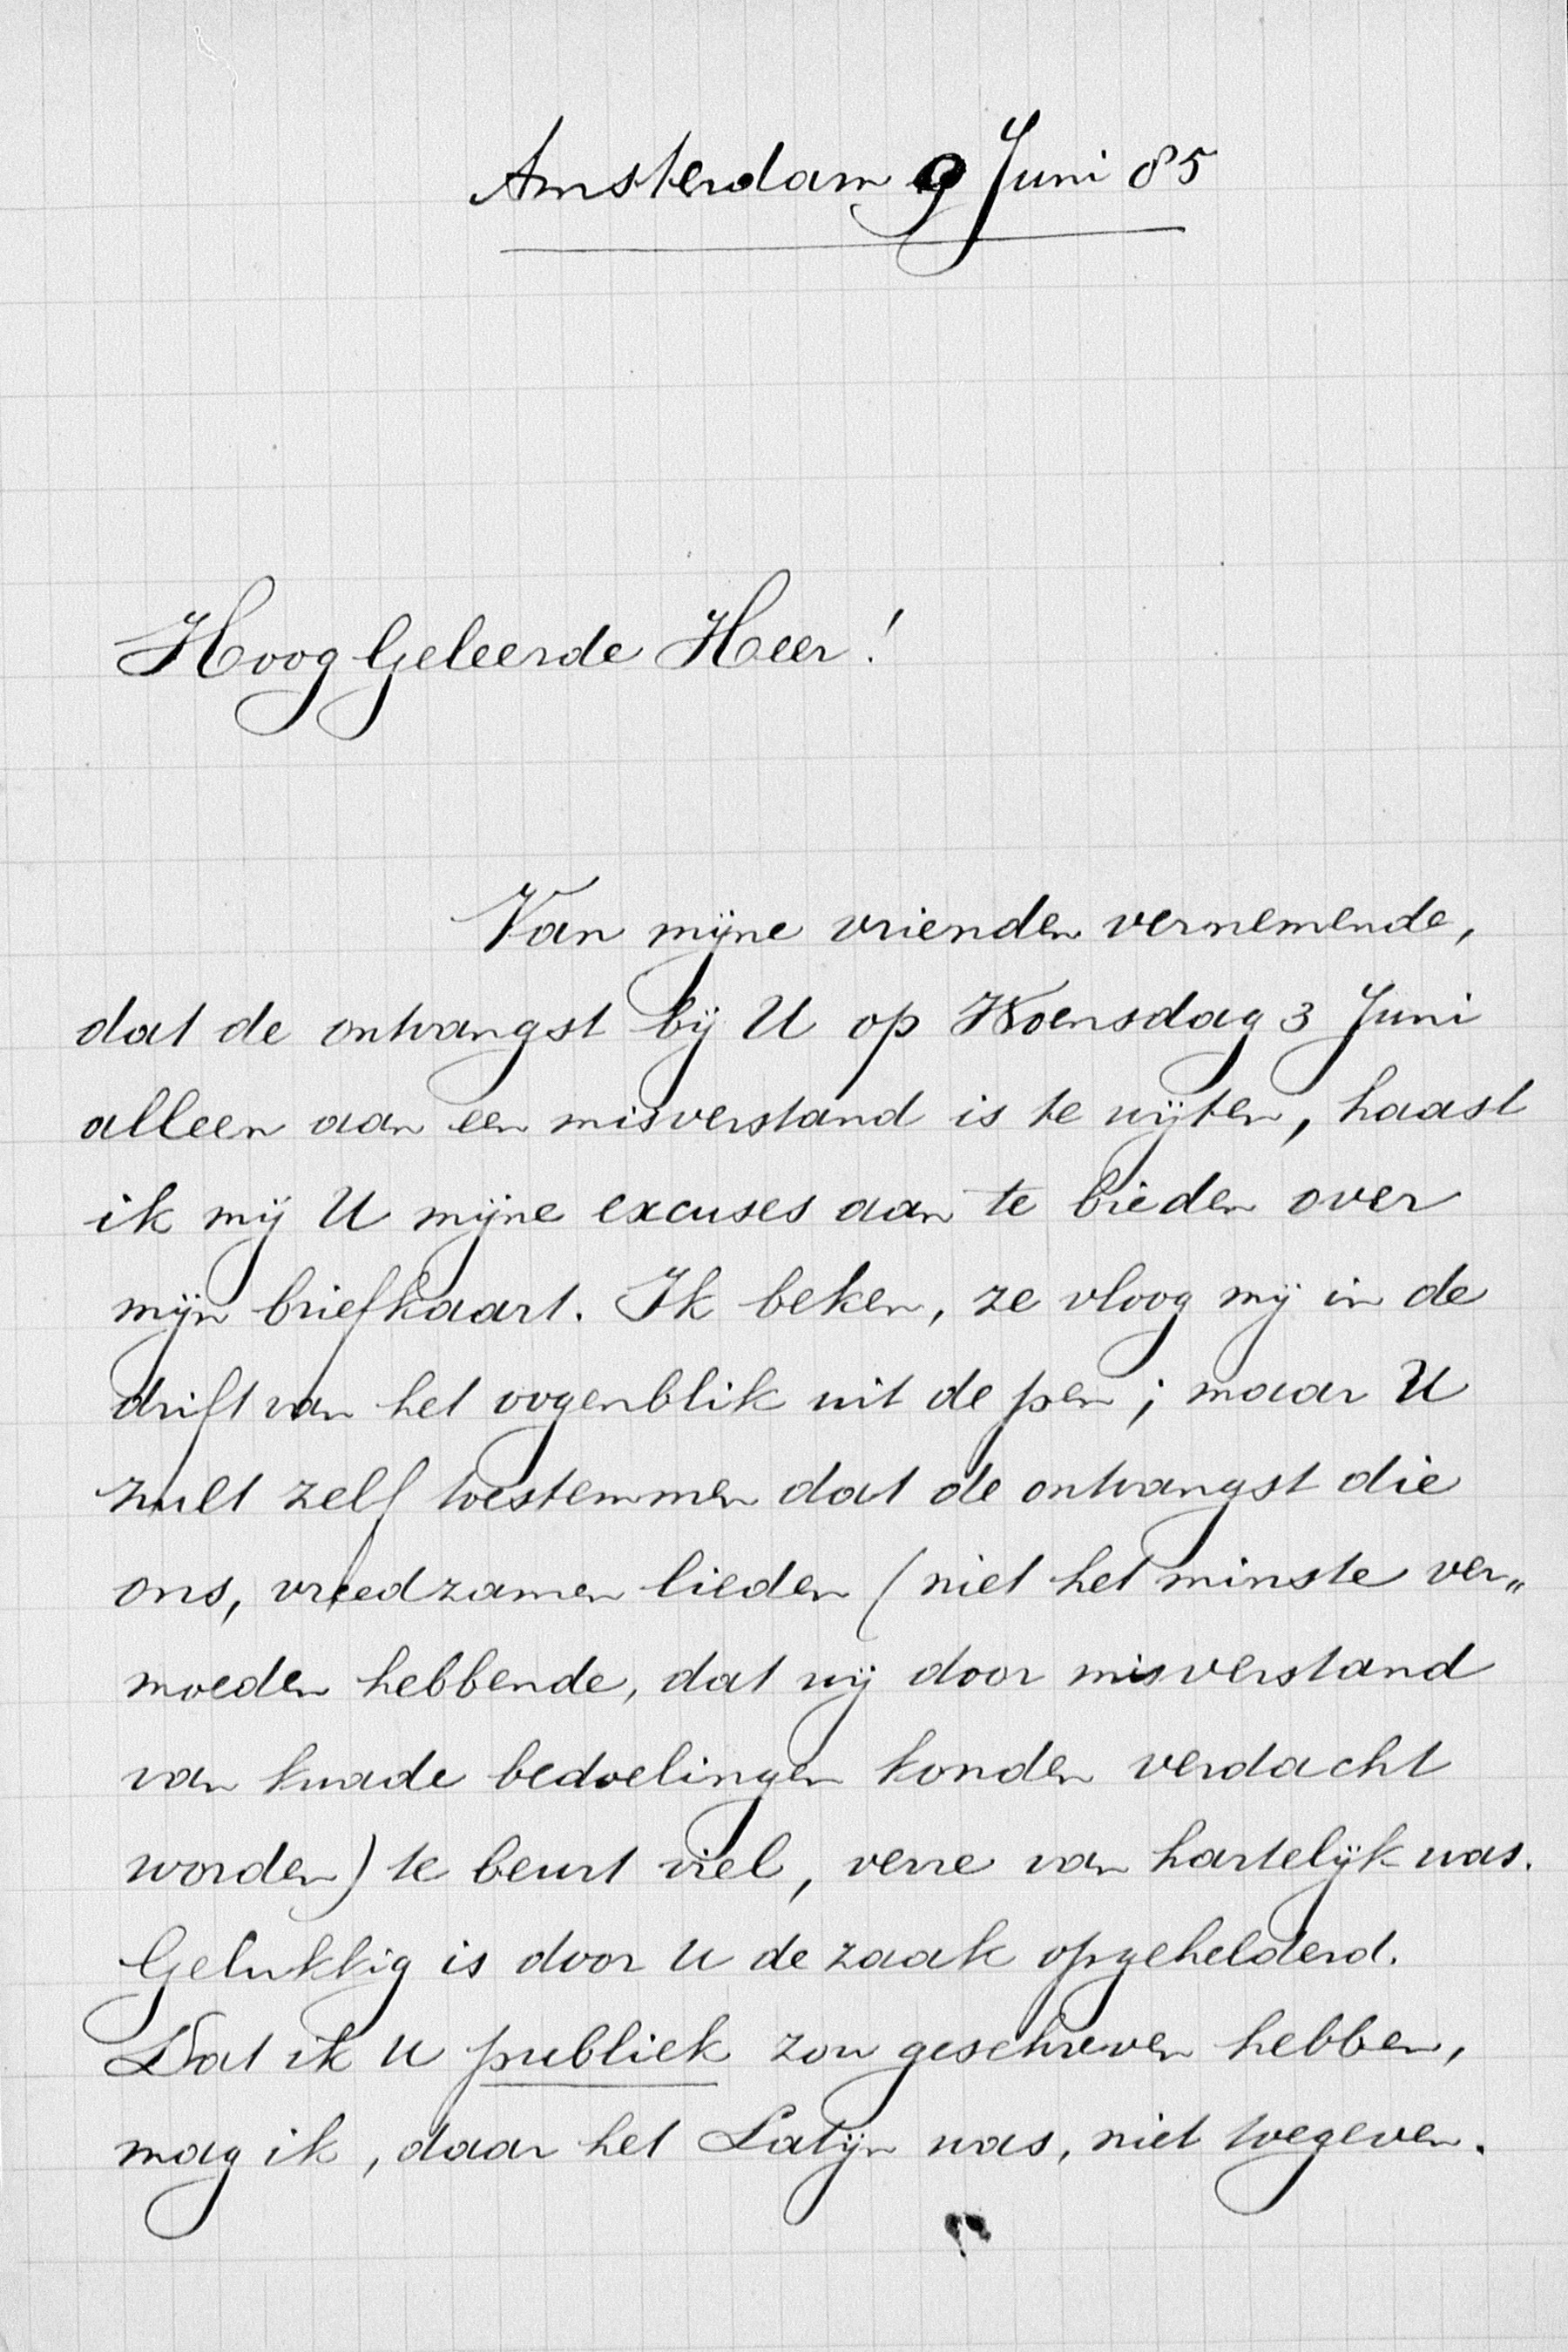 Amsterdam 9 Juni 85
Hoog Geleerde Heer!
Van mijne vrienden vernemende,
dat de ontvangst bij U op Woensdag 3 Juni
alleen aan een misverstand is te wijten, haast
ik mij U mijne excuses aan te bieden over
mijn briefkaart. Ik beken, ze vloog mij in de
drift van het oogenblik uit de pen; maar U
zult zelf toestemmen dat de ontvangst die
ons, vreedzamen lieden (niet het minste ver„
moeden hebbende, dat wij door misverstand
van kwade bedoelingen konden verdacht
worden) te beurt viel, verre van hartelijk was.
Gelukkig is door U de zaak opgehelderd.
Dat ik U publiek zou geschreven hebben,
mag ik, daar het Latijn was, niet toegeven.